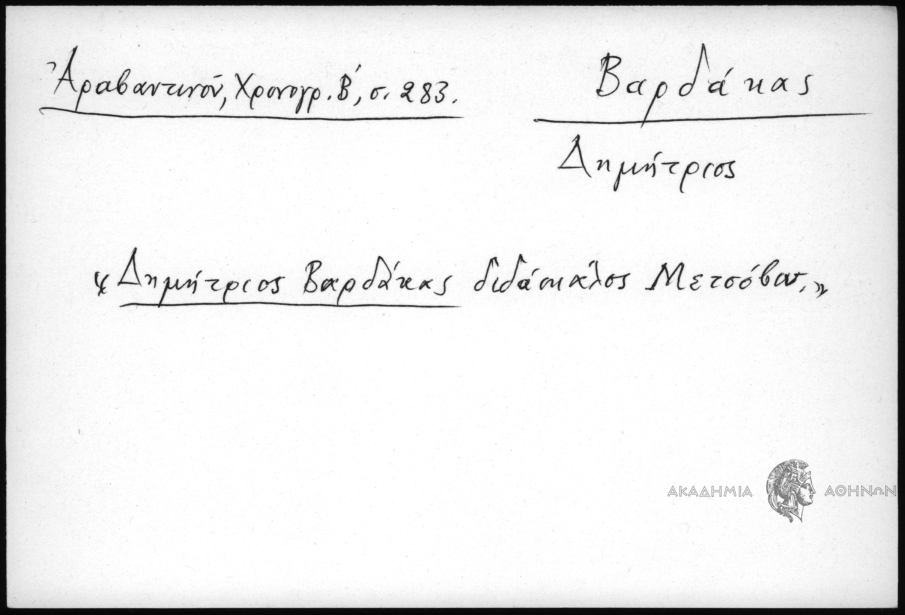 Ἀραβαντινοῦ, Χρονογρ. Β΄, σ. 283.
Βαρδάκας
Δημήτριος
«Δημήτριος Βαρδάκας διδάσκαλος Μετσόβου.»
ΑΚΑΔΗΜΙΑ ΑΘΗΝΩΝ